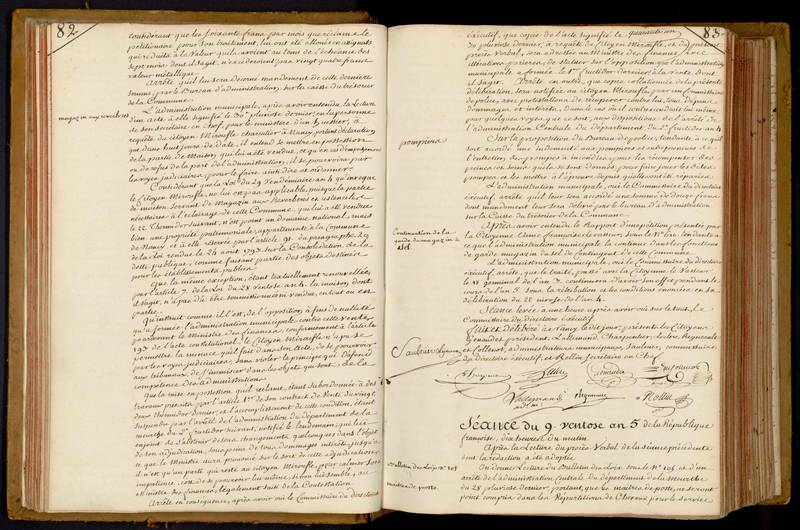 82.
considérant que les soixante francs par mois que réclame le
pétitionnaire pour son traitement, lui ont été alloués en assignats
qui réduits à la valeur qu'ils avoient au tems de l'échéance des
sept mois dont il s'agit, n'excéderoient pas vingt quatre francs
valeur métallique.
Arrête qu'il lui sera décerné mandement de cette dernière
somme, par le Bureau d'administration, sur la caisse du trésorier
de la Commune.
magazin aux reverberes
L'administration municipale, après avoir entendu la Lecture
d'un acte à elle signifié le 30 pluviose dernier, en la personne
de son secrétaire en chef, par le ministère d'un huissier, à
requête du citoyen Mirouffle charcutier à Nancy, portant déclaration,
que dans huit jours de date, il entend se mettre en possession
de la partie de maison qui lui a été vendue, et qu'en cas d'empêchement
ou de refus de la part de l'administration, il se pourvoira par
les voyes judiciaires, pour le faire ainsi dire et ordonner.
Considérant que la Loi du 29 Vendémiaire an 4 qu'invoque
le Citoyen Mirouffle, ne lui est pas applicable, puisque la partie
de maison servant de Magazin aux Reverbères et ustenciles
nécessaires à l'éclairage de cette Commune, qui lui a été vendue
le 22 Thermidor suivant, n'est point un domaine national, mais
bien une propriété patrimoniale, appartenante à la Commune
de Nancy, et à elle réservée par l'article 91. du paragraphe 29
de la Loi rendue le 24 août 1793 sur la Consolidation de la
dette publique, comme faisant partie des objets destinés
pour les établissements publics.
Que la même exception, étant textuellement renouvellée,
par l'article 2 de la Loi du 28 Ventose an 4. la maison dont
il s'agit, n'a pu être soumissionnée ni vendue, en tout ou en
partie.
Qu'instruit comme il l'est, de l'opposition à fins de nullité
qu'a formée l'administration municipale contre cette vente,
pardevant le Ministre des finances, conformément à l'article
193 de l'acte constitutionel, le Citoyen Mirouffle n'a pu se
permettre la menace qu'il fait dans son acte, de se pourvoir
par les voyes judiciaires, sans violer le principe qui défend
aux tribunaux, de s'immiscer dans les objets qui sont de la
compétence des administrations.
Que la mise en possession qu'il réclame, étant subordonnée à des
travaux prescrits par l'article 1er de son contrat de Vente du vingt
deux thermidor dernier, et l'accomplissement de cette condition, étant
suspendu par l'arrêté de l'administration du département de la
meurthe du 2 fructidor suivant, notifié le lendemain, qui lui
enjoint de s'abstenir de tous changements quelconques dans l'objet
de son adjudication, sous peine de tous dommages intérêts, jusqu'à
ce que le Ministre aura prononcé sur le sort de cette adjudication,
il n'est qu'un parti qui reste au citoyen Mirouffle, pour calmer son
impatience, c'est de se pourvoir lui même, si bon lui semble, au
Ministre des finances, légalement saisi de la Contestation.
Arrête en conséquence, après avoir oui le Commissaire du directoire
83.
exécutif, que copie de l'acte signifié le
du pluviose dernier, à requête du Citoyen Mirouffle, et du présent
procès Verbal, sera adressée au Ministre des finances avec
itératives prieres, de statuer sur l'opposition que l'administration
municipale a formée le 1er fructidor dernier à la Vente dont
il s'agit. Arrête en outre, que copie collationnée de la présente
délibération, sera notifiée au citoyen Mirouffle par un commissaire
de police, avec protestations de répéter contre lui, tous dépens
dommages et intérêts, dans le cas où il contreviendroit lui même,
par quelques voyes que ce soit, aux dispositions de l'arrêté de
l'administration Centrale du Département, du 2 fructidor an 4.
pompiers
Sur la proposition du Bureau de police, tendante à ce qu'il
soit accordé une indemnité aux pompiers et entrepreneurs de
l'entretien des pompes à incendies, pour les récompenser des
peines et soins qu'ils se sont donnés, pour faire jouer lesdites
pompes et les mettre à l'épreuve depuis qu'elles ont été réparées.
L'administration municipale, oui le Commissaire du directoire
exécutif, arrête qu'il leur sera accordé une somme de douze francs
dont mandement leur sera délivré par le bureau d'administration
sur la Caisse du trésorier de la Commune.
Continuation de la
garde du magazin à
sel.
Après avoir entendu le Rapport d'une pétition, présentée par
la Citoyenne femme françois Levasseur, sous le No tendante à
ce que l'administration municipale la continue dans les fonctions
de garde magazin du sel de contingent de cette Commune.
L'administration municipale, oui le Commissaire du directoire
exécutif, arrête, que le traité, passé avec la Citoyenne le Vasseur
le 18 germinal de l'an 4. continuera d'avoir son effet pendant le
cours de l'an 5. sous la rétribution et les conditions énoncées en sa
délibération du 22 nivose de l'an 4.
Séance levée à une heure après avoir oui sur le tout, le
Commissaire du Directoire Exécutif.
Fait et délibéré à Nancy ledit jour, présents les Citoyens
président, L'allemand, Charpentier, Leclerc, Regneault
et administrateurs municipaux, Saulnier, commissaire
du Directoire exécutif, et Rollin, secrétaire en Chef.
Rollin
Séance du 9. ventose an 5 de la République
françoise, dix heures du matin.
Après la Lecture du procès Verbal de la séance précédente
dont la rédaction a été adoptée.
Bulletin des Lois No 105
On donne Lecture du Bulletin des Lois sous le No 105, et d'un
maitres de poste.
arrêté de l'administration Centrale du Département de la meurthe
du 28 pluviose dernier, portant, que les maitres de poste, ne seront
point compris dans les Répartitions de Chevaux pour le service